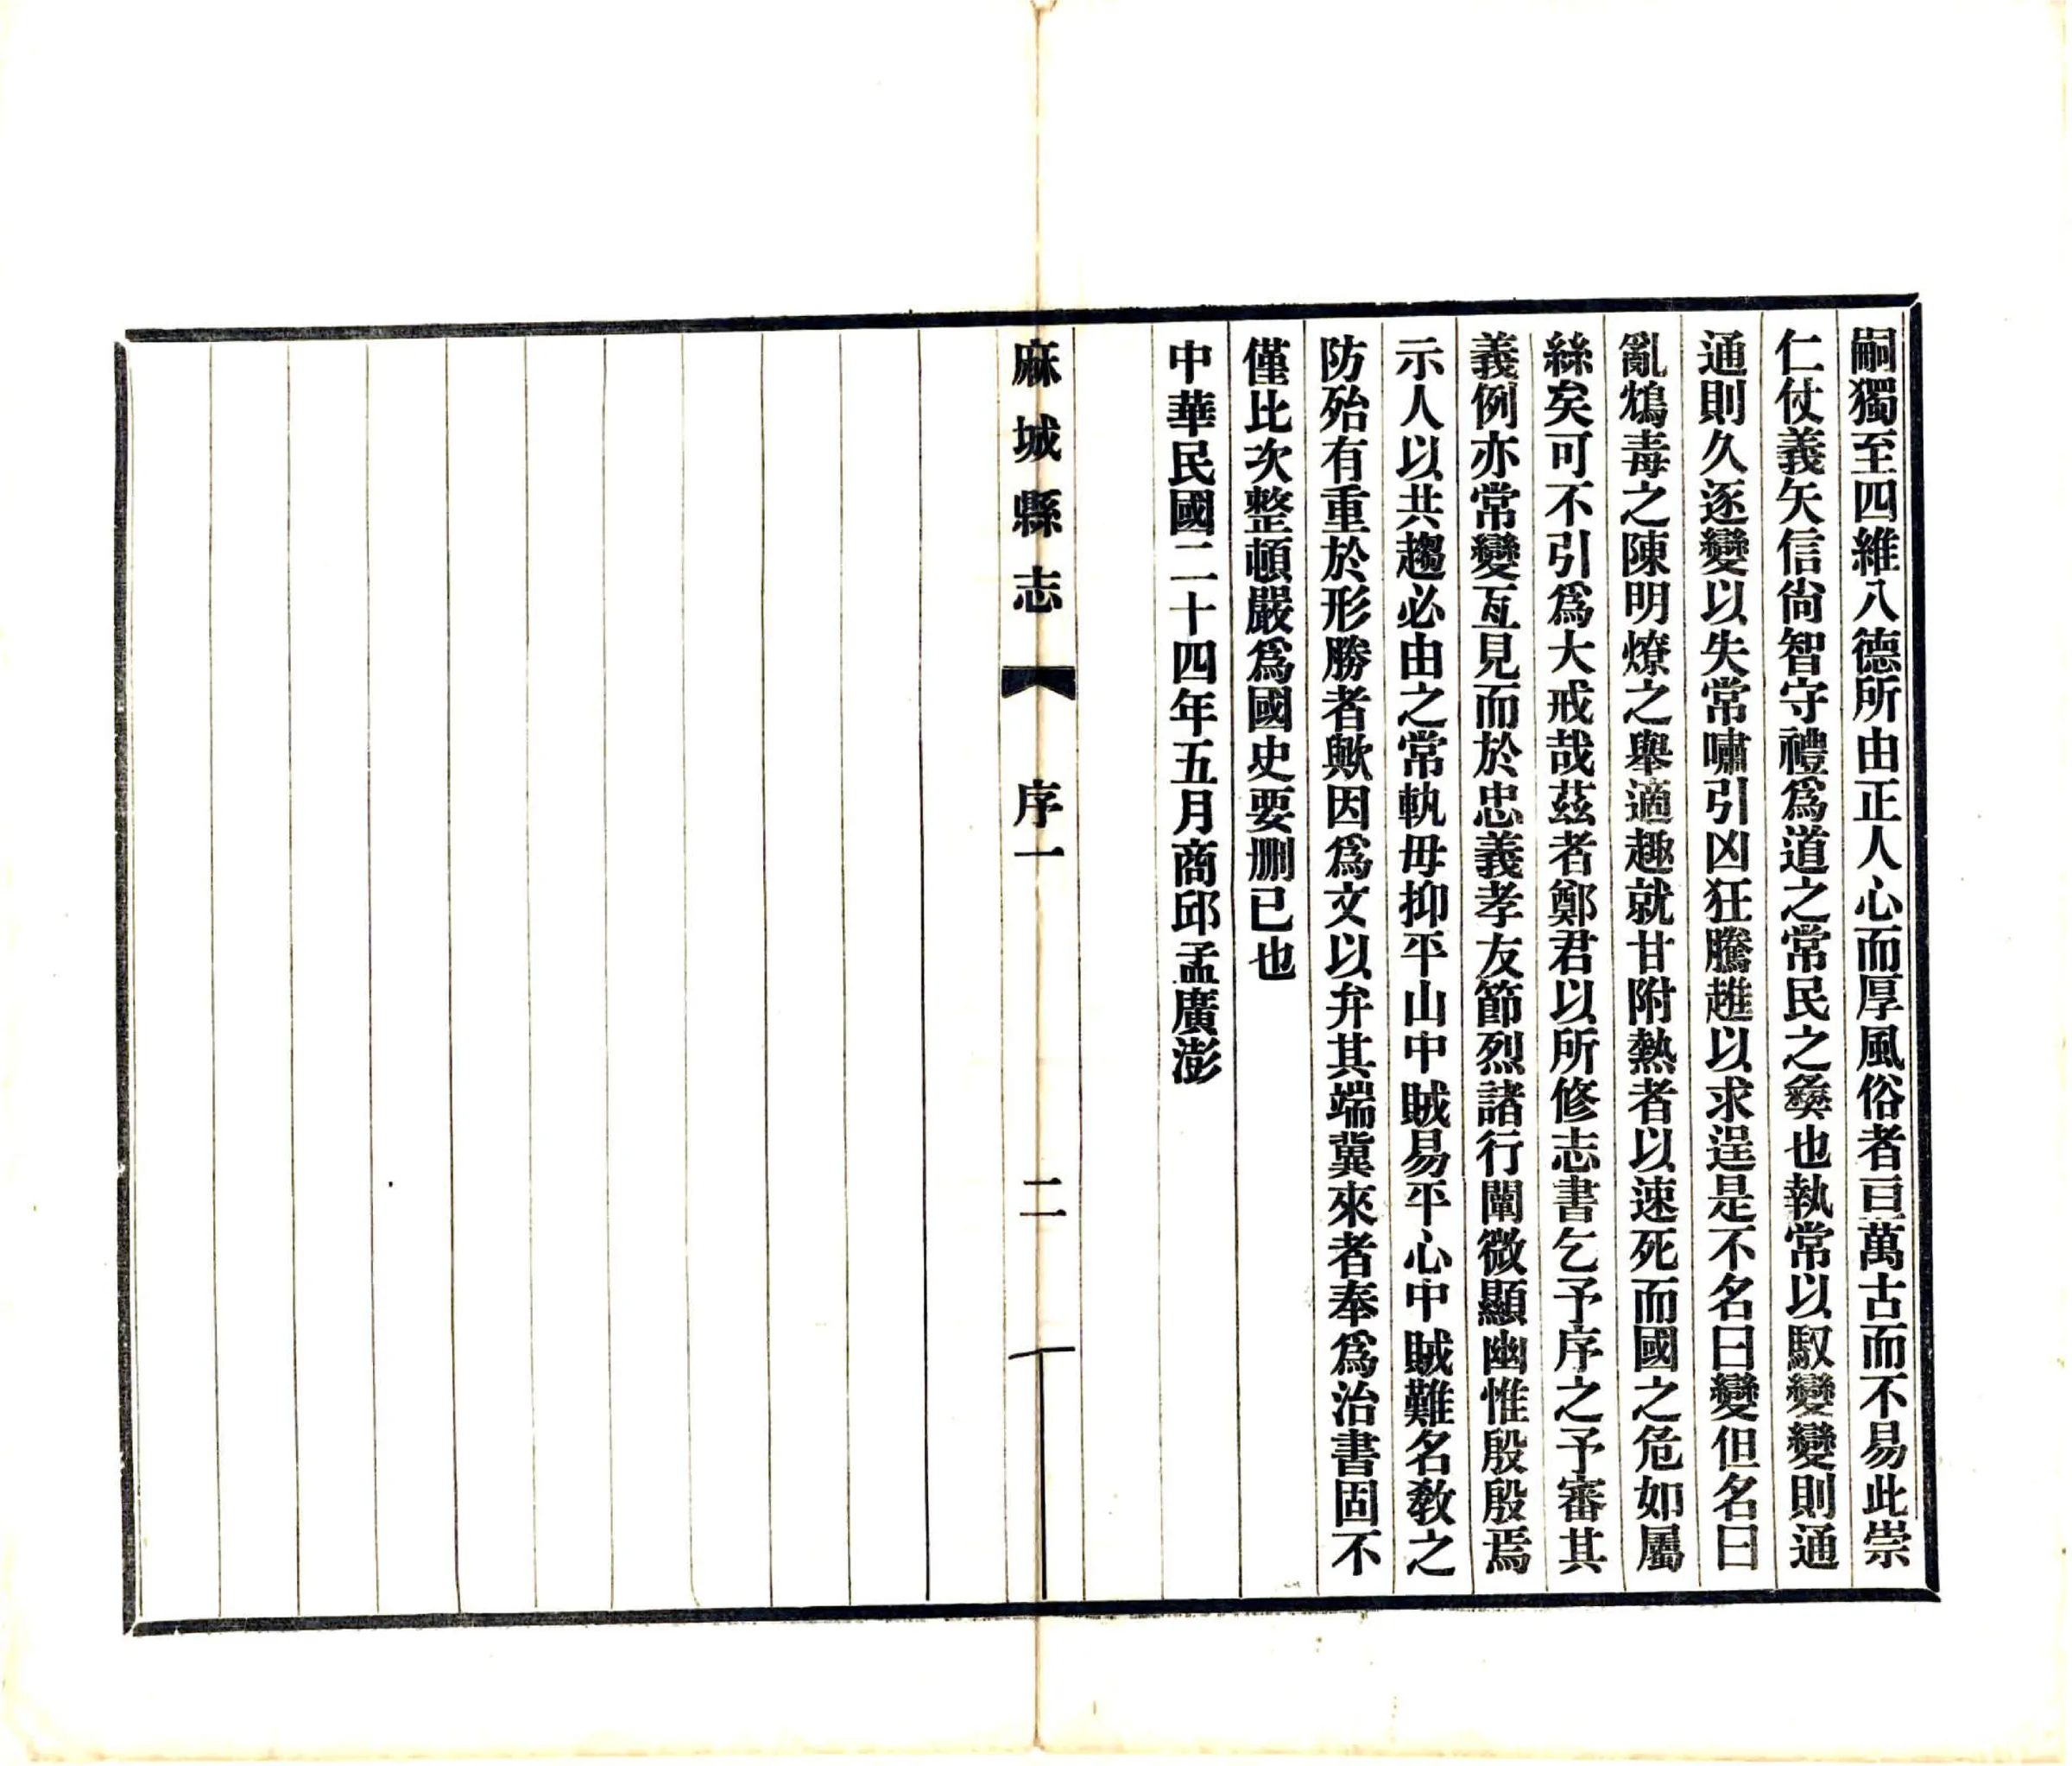 嗣獨至四維八德所由正人心而厚風俗者亘萬古而不易此崇
仁仗義矢信尙智守禮爲道之常民之彝也執常以馭變變則通
通則久逐變以失常嘯引凶狂騰趡以求逞是不名曰變但名曰
亂鴆毒之陳明燎之舉適趣就甘附熱者以速死而國之危如屬
絲矣可不引爲大戒哉茲者鄭君以所修志書乞予序之予審其
義例亦常變互見而於忠義孝友節烈諸行闡微顯幽惟殷殷焉
示人以共趨必由之常軌毋抑平山中賊易平心中賊難名敎之
防殆有重於形勝者歟因爲文以弁其端冀來者奉爲治書固不
僅比次整頓嚴爲國史要删已也
中華民國二十四年五月商邱孟廣澎
麻城縣志 序一 二